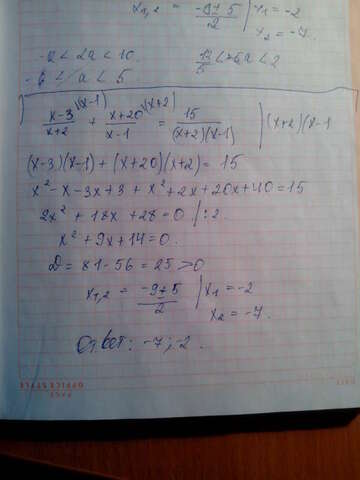 x₁,₂ = (-9±5)/2 | x₁ = -2
x₂ = -7.
< 2a < 10
a < 5
(x-3)/(x+2) ^(x-1) + (x+20)/(x-1) ^(x+2) = 15/((x+2)(x-1)) | (x+2)(x-1
(x-3)(x-1) + (x+20)(x+2) = 15
x² - x - 3x + 3 + x² + 2x + 20x + 40 = 15
2x² + 18x + 28 = 0 /: 2.
x² + 9x + 14 = 0.
D = 81 - 56 = 25 > 0
x₁,₂ = (-9±5)/2 | x₁ = -2
x₂ = -7.
Ответ: -7; -2.
OFFICE STYLE